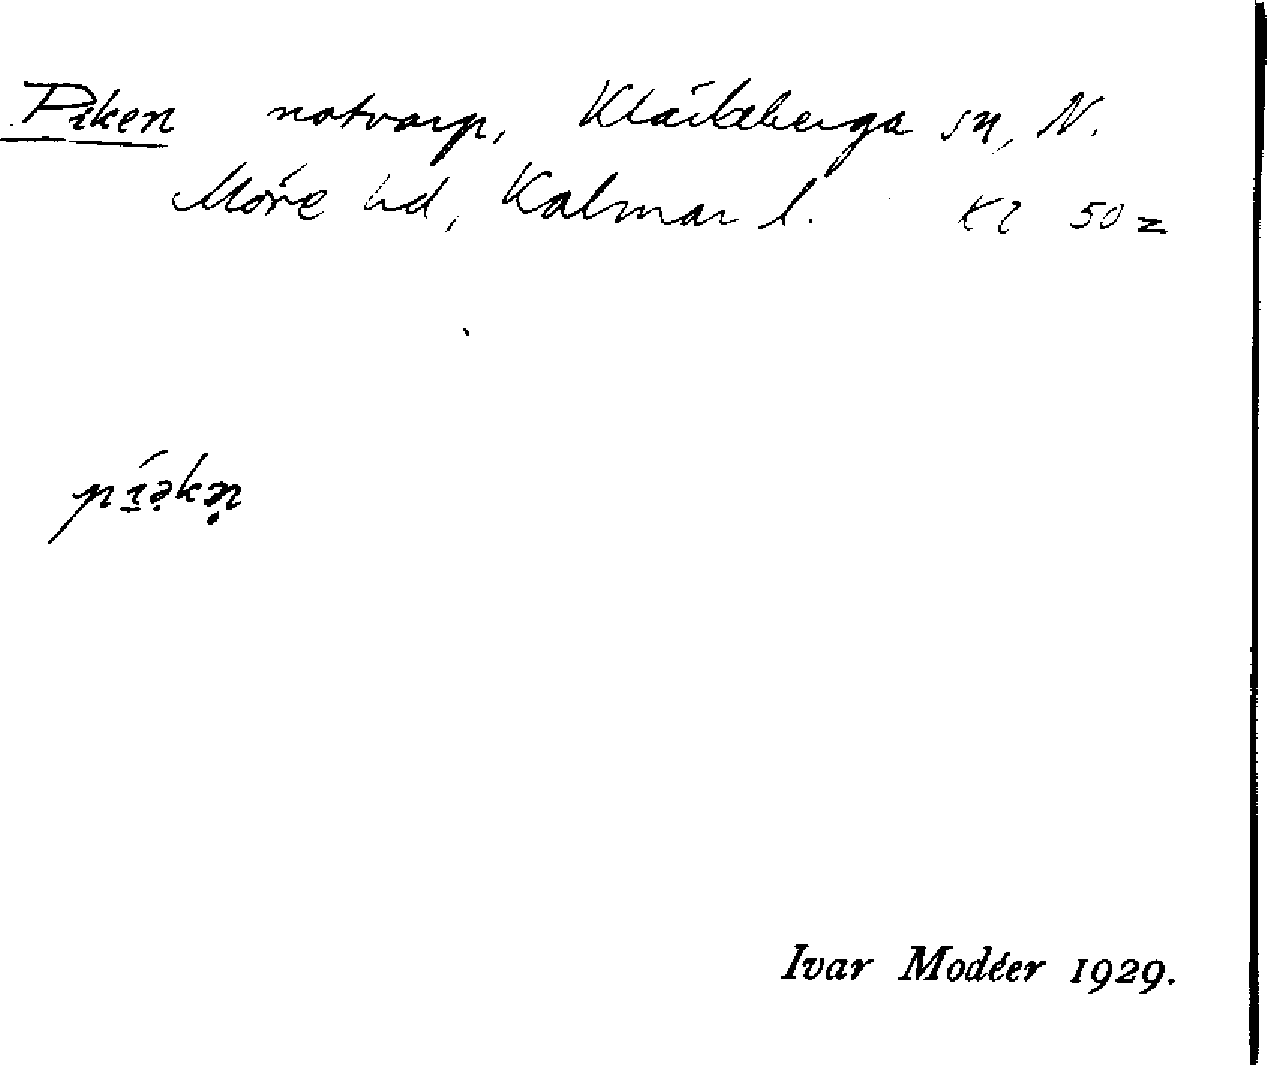 Piken notvarp, Kläckeberga sn, N.
Möre hd, Kalmar l. Kl 50 z
pi̱ə̣kən̥
Ivar Modéer 1929.